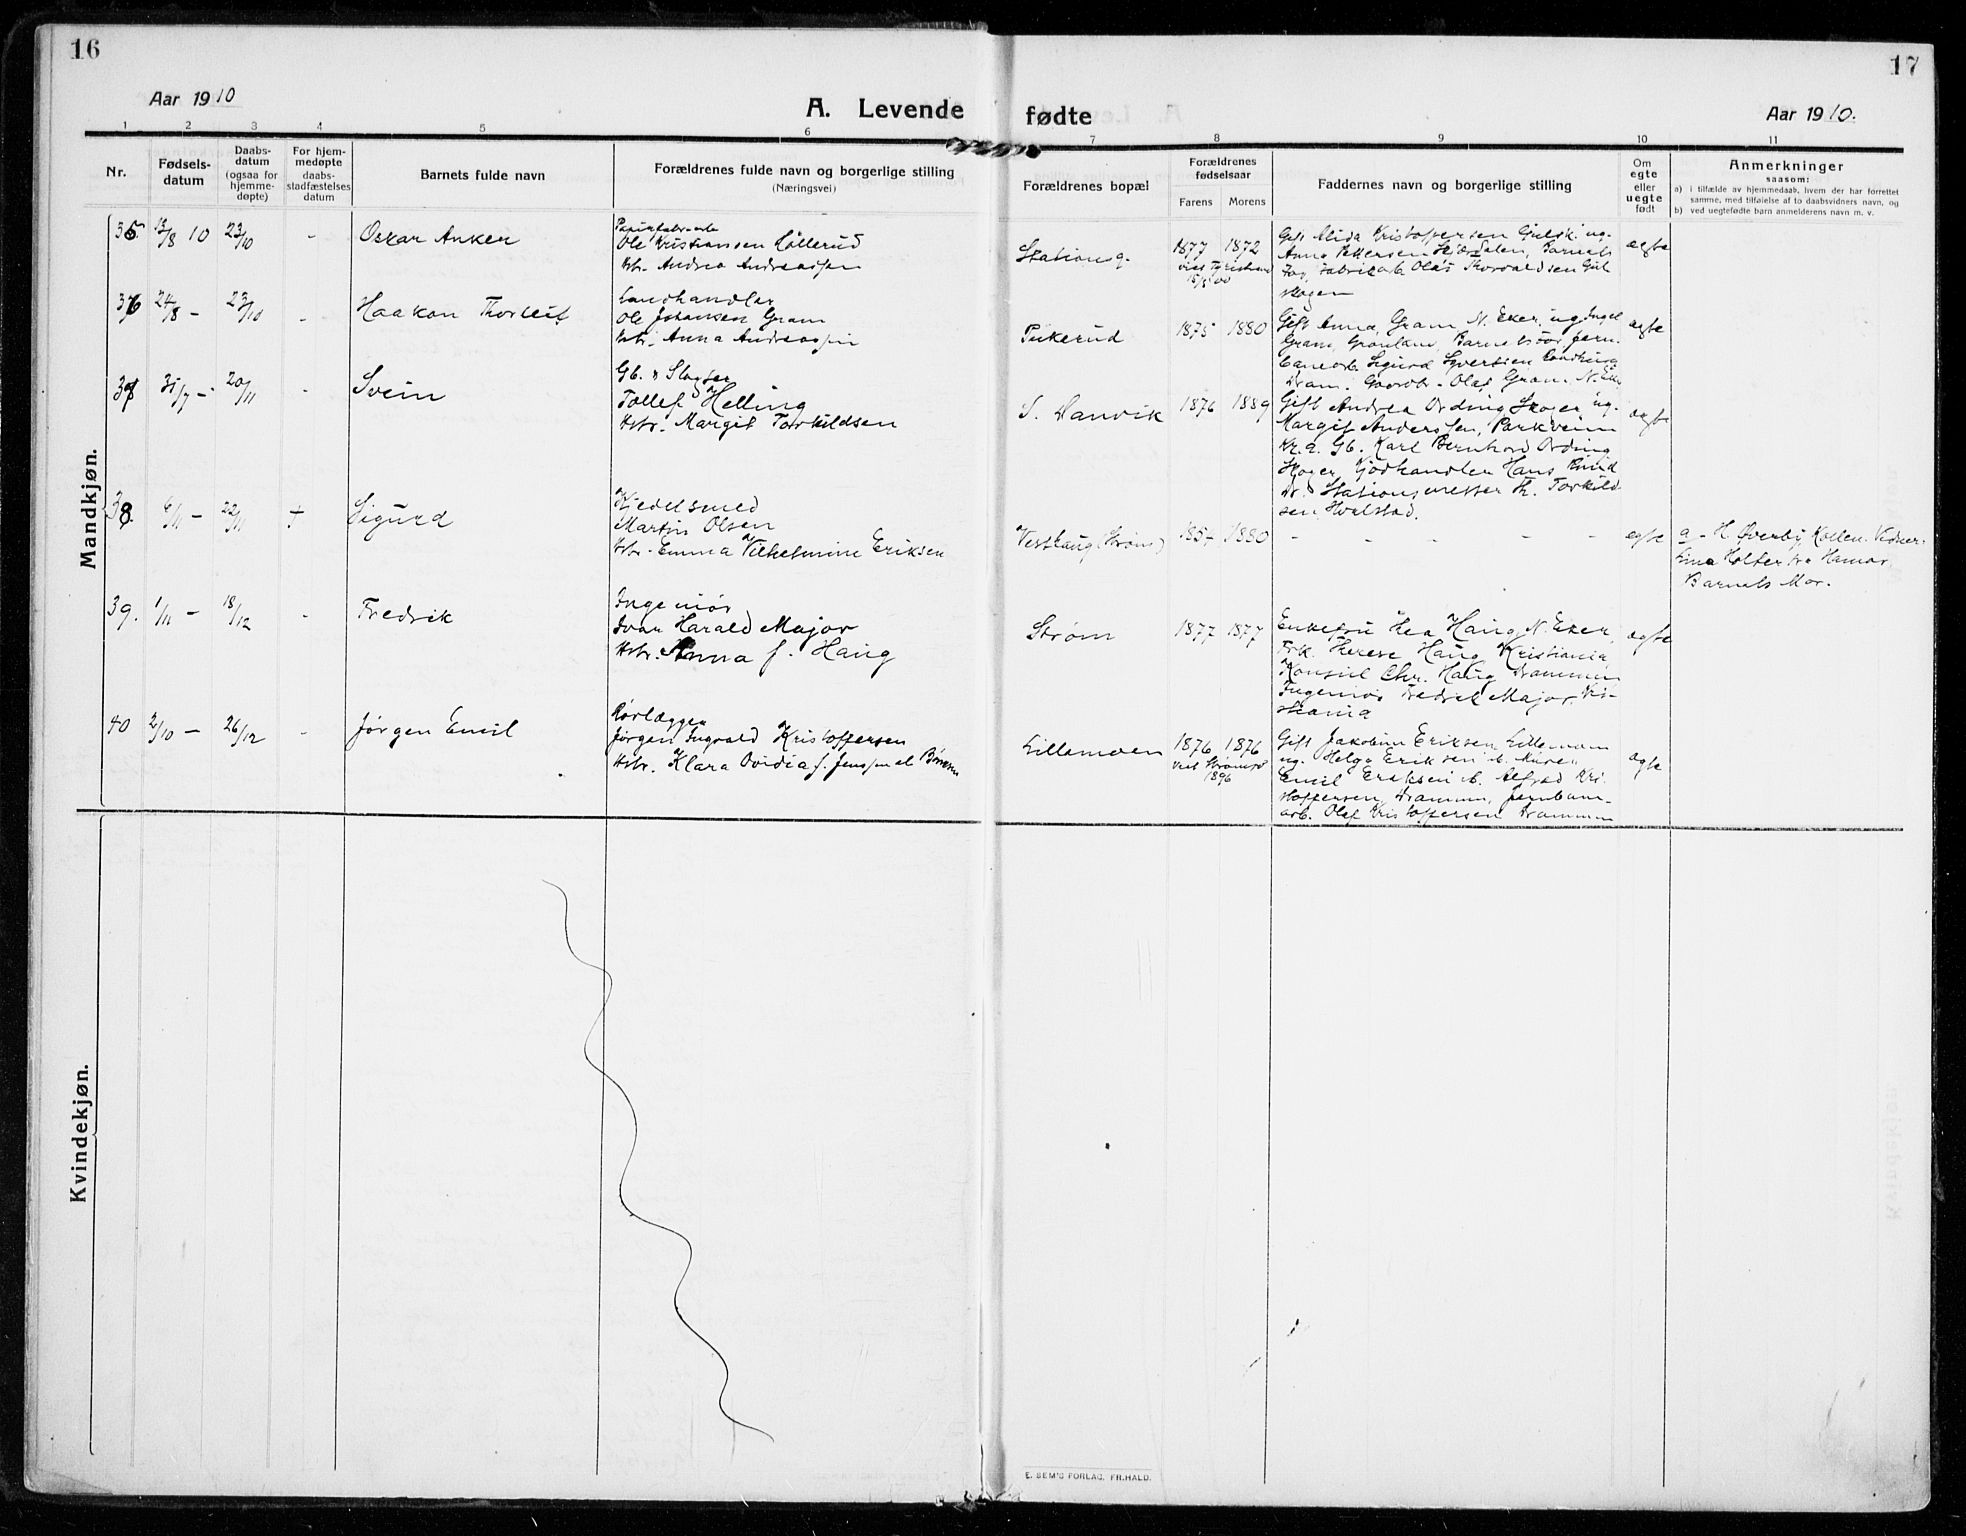 16
17
Aar 1910
A. Levende
fødte
Aar 1910.
1 2 3 4 5 6 7 8 9 10 11
Nr.
Fødsels-
datum
Daabs-
datum
(ogsaa for
hjemme-
døpte)
For hjem-
medøpte
daabs-
stadfæstelses
datum
Barnets fulde navn
Forældrenes fulde navn og borgerlige stilling
(Næringsvei)
Forældrenes bopæl
Forældrenes
fødselsaar
Farens Morens
Faddernes navn og borgerlige stilling
Om
egte
eller
uegte
født
Anmerkninger
saasom:
a) i tilfælde av hjemmedaab, hvem der har forrettet
samme, med tilføielse af to daabsvidners navn, og
b) ved uegtefødte barn anmelderens navn m. v.
Mandkjøn.
35. 13/8 10 23/10 - Oskar Anker
Ole Kristiansen Høllerud
Hstr. Andrea Andreassen
Stationsg. 1877 1872
15/5 00
Gift Alida Kristoffersen Gulsk. ug.
Anna Pettersen Skjærdalen, Barnets
Far, Fabrikarb. Olaf Thorvaldsen Gul
skogen
egte
36 24/8 - 23/10 - Haakon Thorleif
Landhandler
Ole Johansen Gram
Hstr. Anna Andreassen
Pukerud 1875 1880
Gift Anna Gram N. Eker, ug Ingel
Gram, Barnets Far, Jern-
banearb. Sigurd Syvertsen
Dram. Gaardbr. Olaf Gram N. Eker
egte
37 31/7 - 20/11 - Svein
Gb. & Slagter
Tollef Helling
Hstr. Margit Torkildsen
S. Danvik 1876 1889
Gift Andrea Ording Skoger ug.
Margit Anderssen, Parkveien
Kr.a. Gb. Karl Bernhard Ording
Skoger, Kjødhandler Hans Ruud
Dr. Stationsmester Th. Torkild-
sen Hvalstad.
egte
38 6/11 - 22/11 + Sigurd
Kjedelsmed
Martin Olsen
Hstr. Emma Vilhelmine Eriksen
Vesthaug (Strøm) 1857 1880
- - - - -
egte
a - H. Øverby, Kollen. Vidner:
Lina Holter fra Hamar,
Barnets Mor.
39. 1/11 - 18/12 - Fredrik
Ingeniør
Ivar Harald Major
Hstr. Anna f. Haug
Strøm 1877 1877
Enkefru Thea Haug N. Eker,
Frk. Therese Haug Kristiania,
Konsul Chr. Haug Drammen
Ingeniør Fredrik Major, Kri-
stiania
egte
40 2/10 - 26/12 - Jørgen Emil
Rørlægger
Jørgen Ingvald Kristoffersen
Hstr. Klara Ovidia f. Jenssen
Lillemoen 1876 1876
viet Strømsø
1896
Gift Jakobine Eriksen Lillemoen
ug. Helga Eriksen
Emil Eriksen Alfred Kri-
stoffersen, Drammen, Jernbane-
arb. Olaf Kristoffersen Drammen
egte
Kvindekjøn.
E. SEM'S FORLAG, FR.HALD.